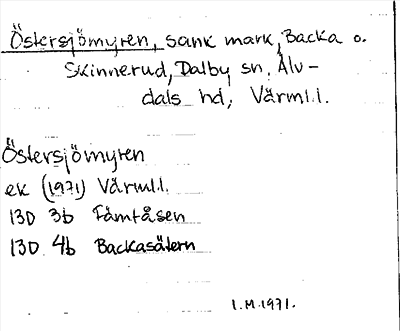 Östersjömyren, sank mark, Backa o.
Skinnerud, Dalby sn, Älv-
dals hd, Värml.l.
Östersjömyren
ek (1971) Värml.l.
13D 3b Fämtåsen
13D 4b Backasätern
I.M.1971.